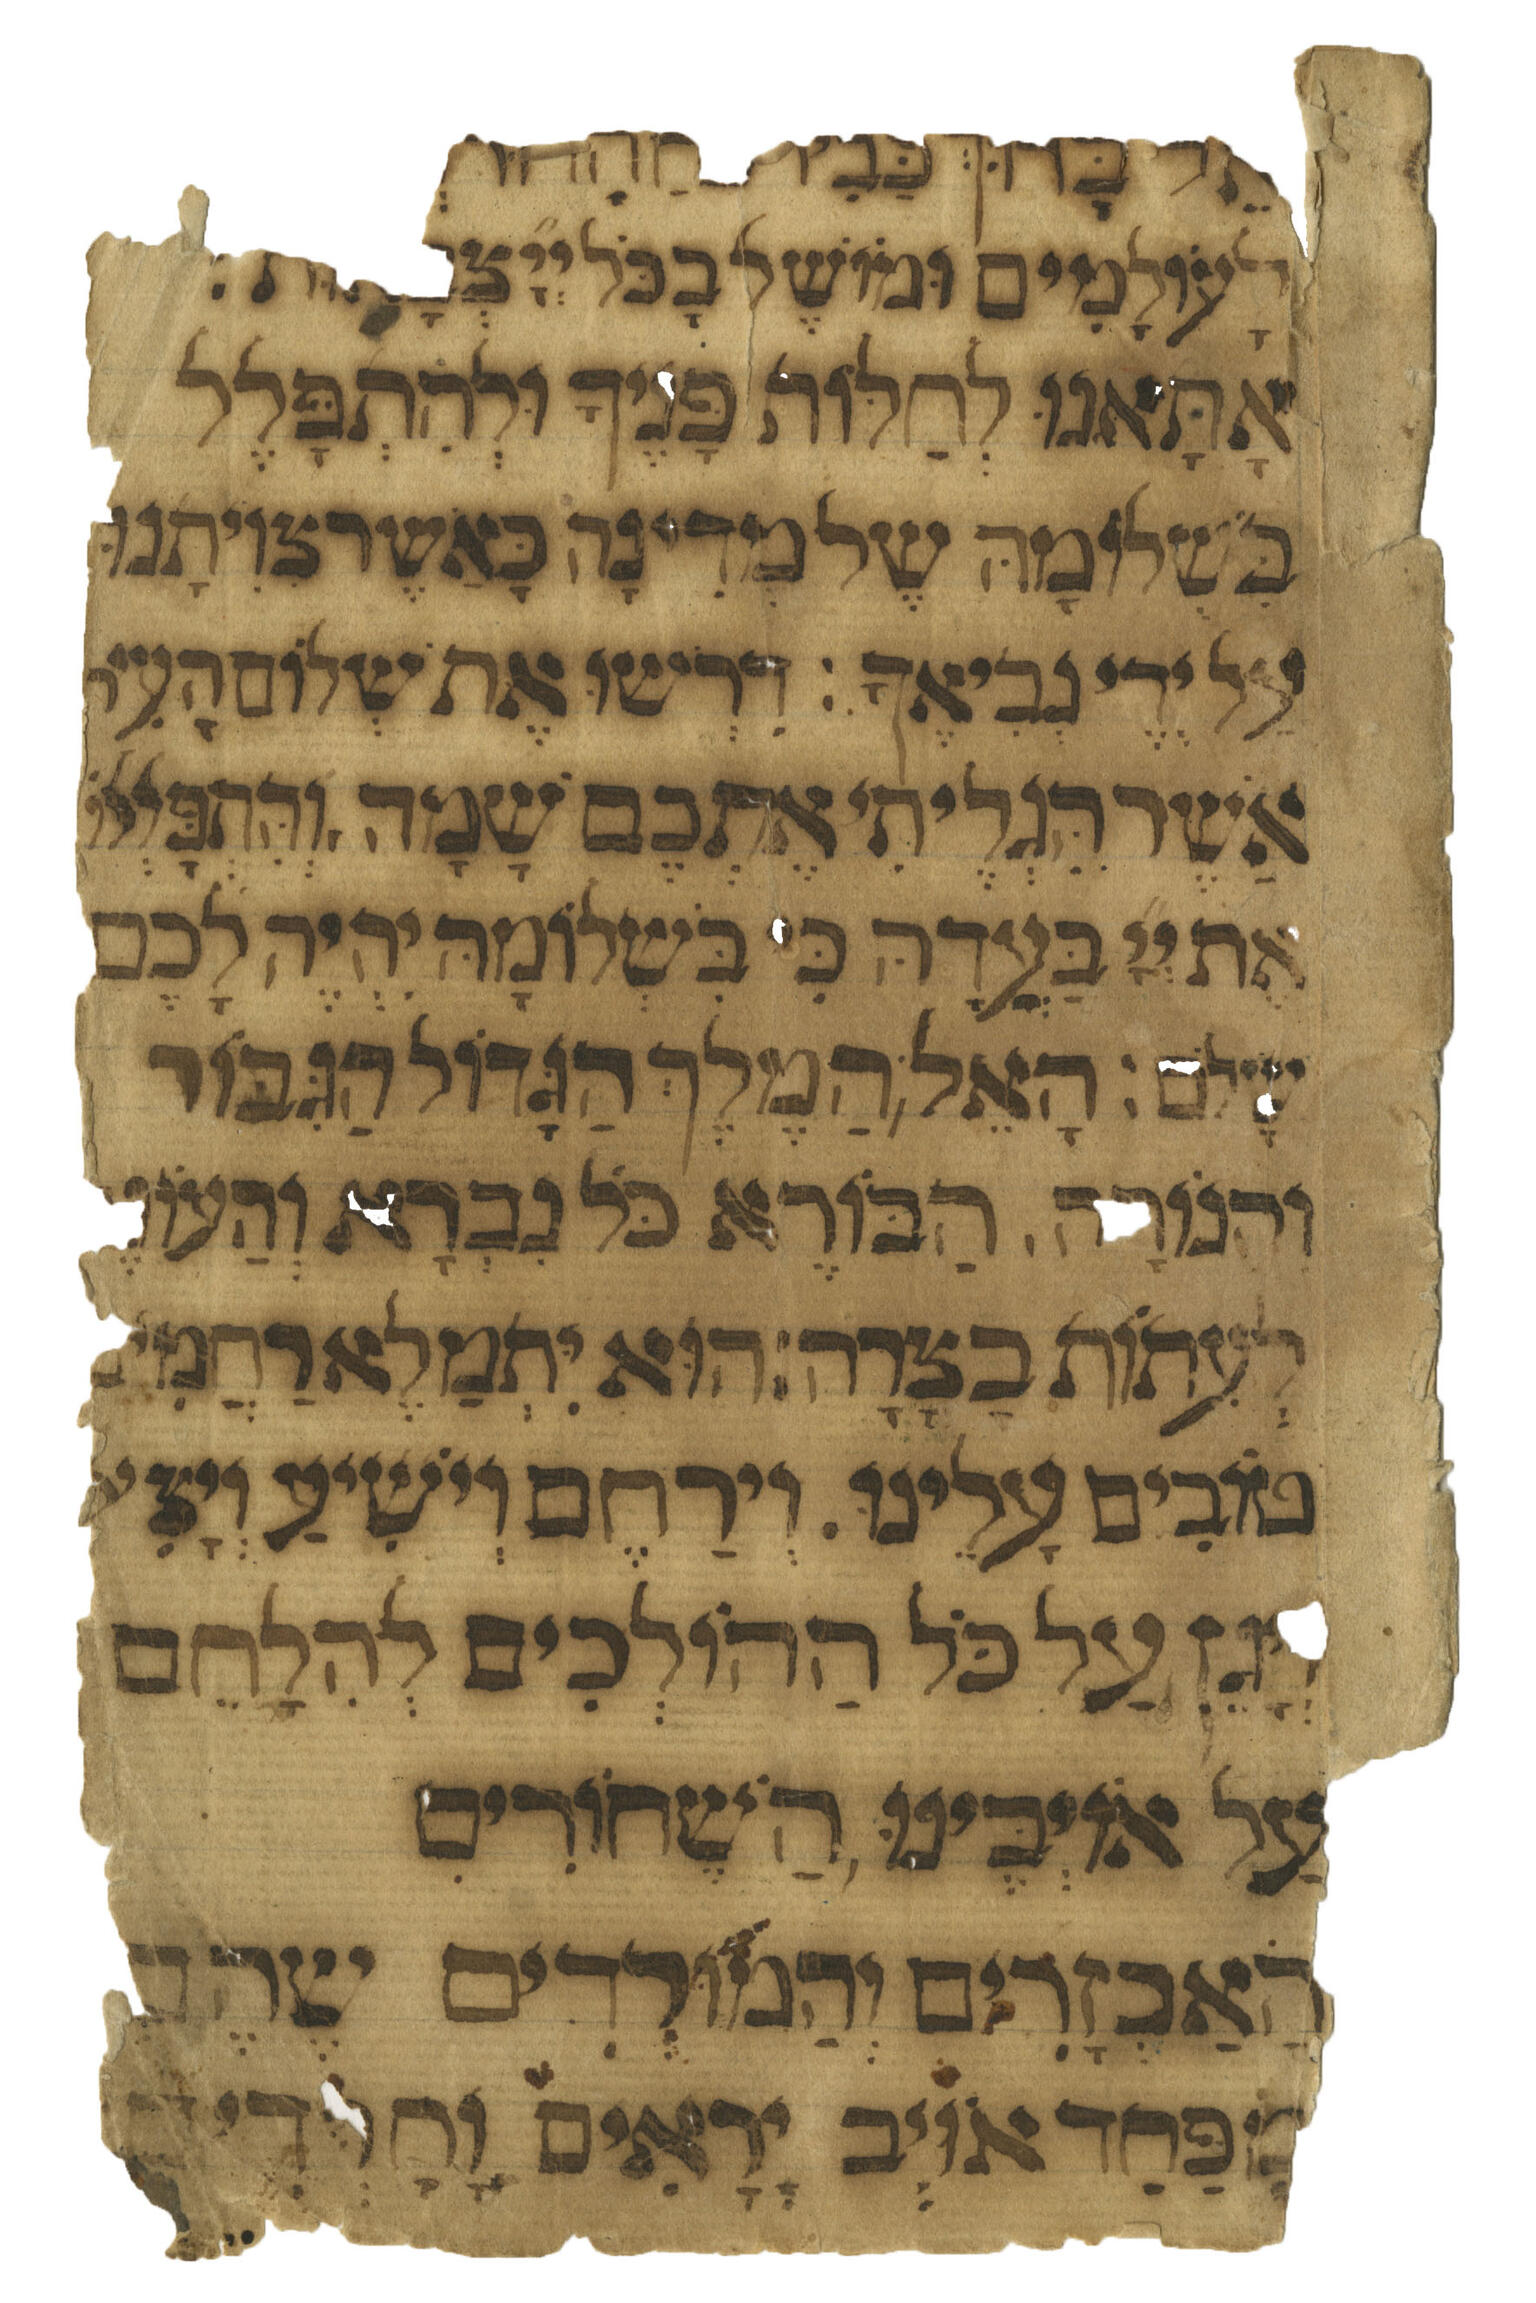 לָעֹוֹלָמִים וּמוֹשֶׁל בָּכֹּל יְיָ
אָתָּאנוּ לְחַלּוֹת פָּנֶיךָ וּלְהִתְפַּלֶל
בִּשְׁלוֹמָהּ שֶׁל מְדִינָה כָּאַשֶׁר צִוִיתָנוּ
עַל יְדֶי נְבִיאֶךָ : דִרְשׁוּ אֶת שְׁלוֹם הָעִיר
אַשֶׁר הִגְלֶיתִי אֶתְכֶם שָׁמָה וְהִתְפָּלְלוּ
אֶת יְיָ בַּעֲדָהּ כִּי בִּשְׁלוֹמָהּ יִהְיֶה לָכֶם
שָׁלֹם : הָאֵל הַמֶלֶךְ הַגָּדוֹל הַגִּבּוֹר
וְהַנוֹרָה הַבּוֹרֶא כֹּל נִבְרָא
לְעִתוֹת בַּצָרָה : הוּא יִתְמַלֶא רַחֲמִים
טוֹבִים עָלֵינוּ . וְיַרַחֶם וְיוֹשִׁיעַ
וְיָגֶן עַל כֹּל הַהוֹלְכִים לְהִלָחֵם
עַל אוֹיְבֶּינוּ הַשֶׁחוֹרִים
הָאַכְזָרִים וְהַמוּרְדִים שֶׁהֶם
מִפַּחַד אוֹיֵב יָרָאִים וָחֲרֵדִים